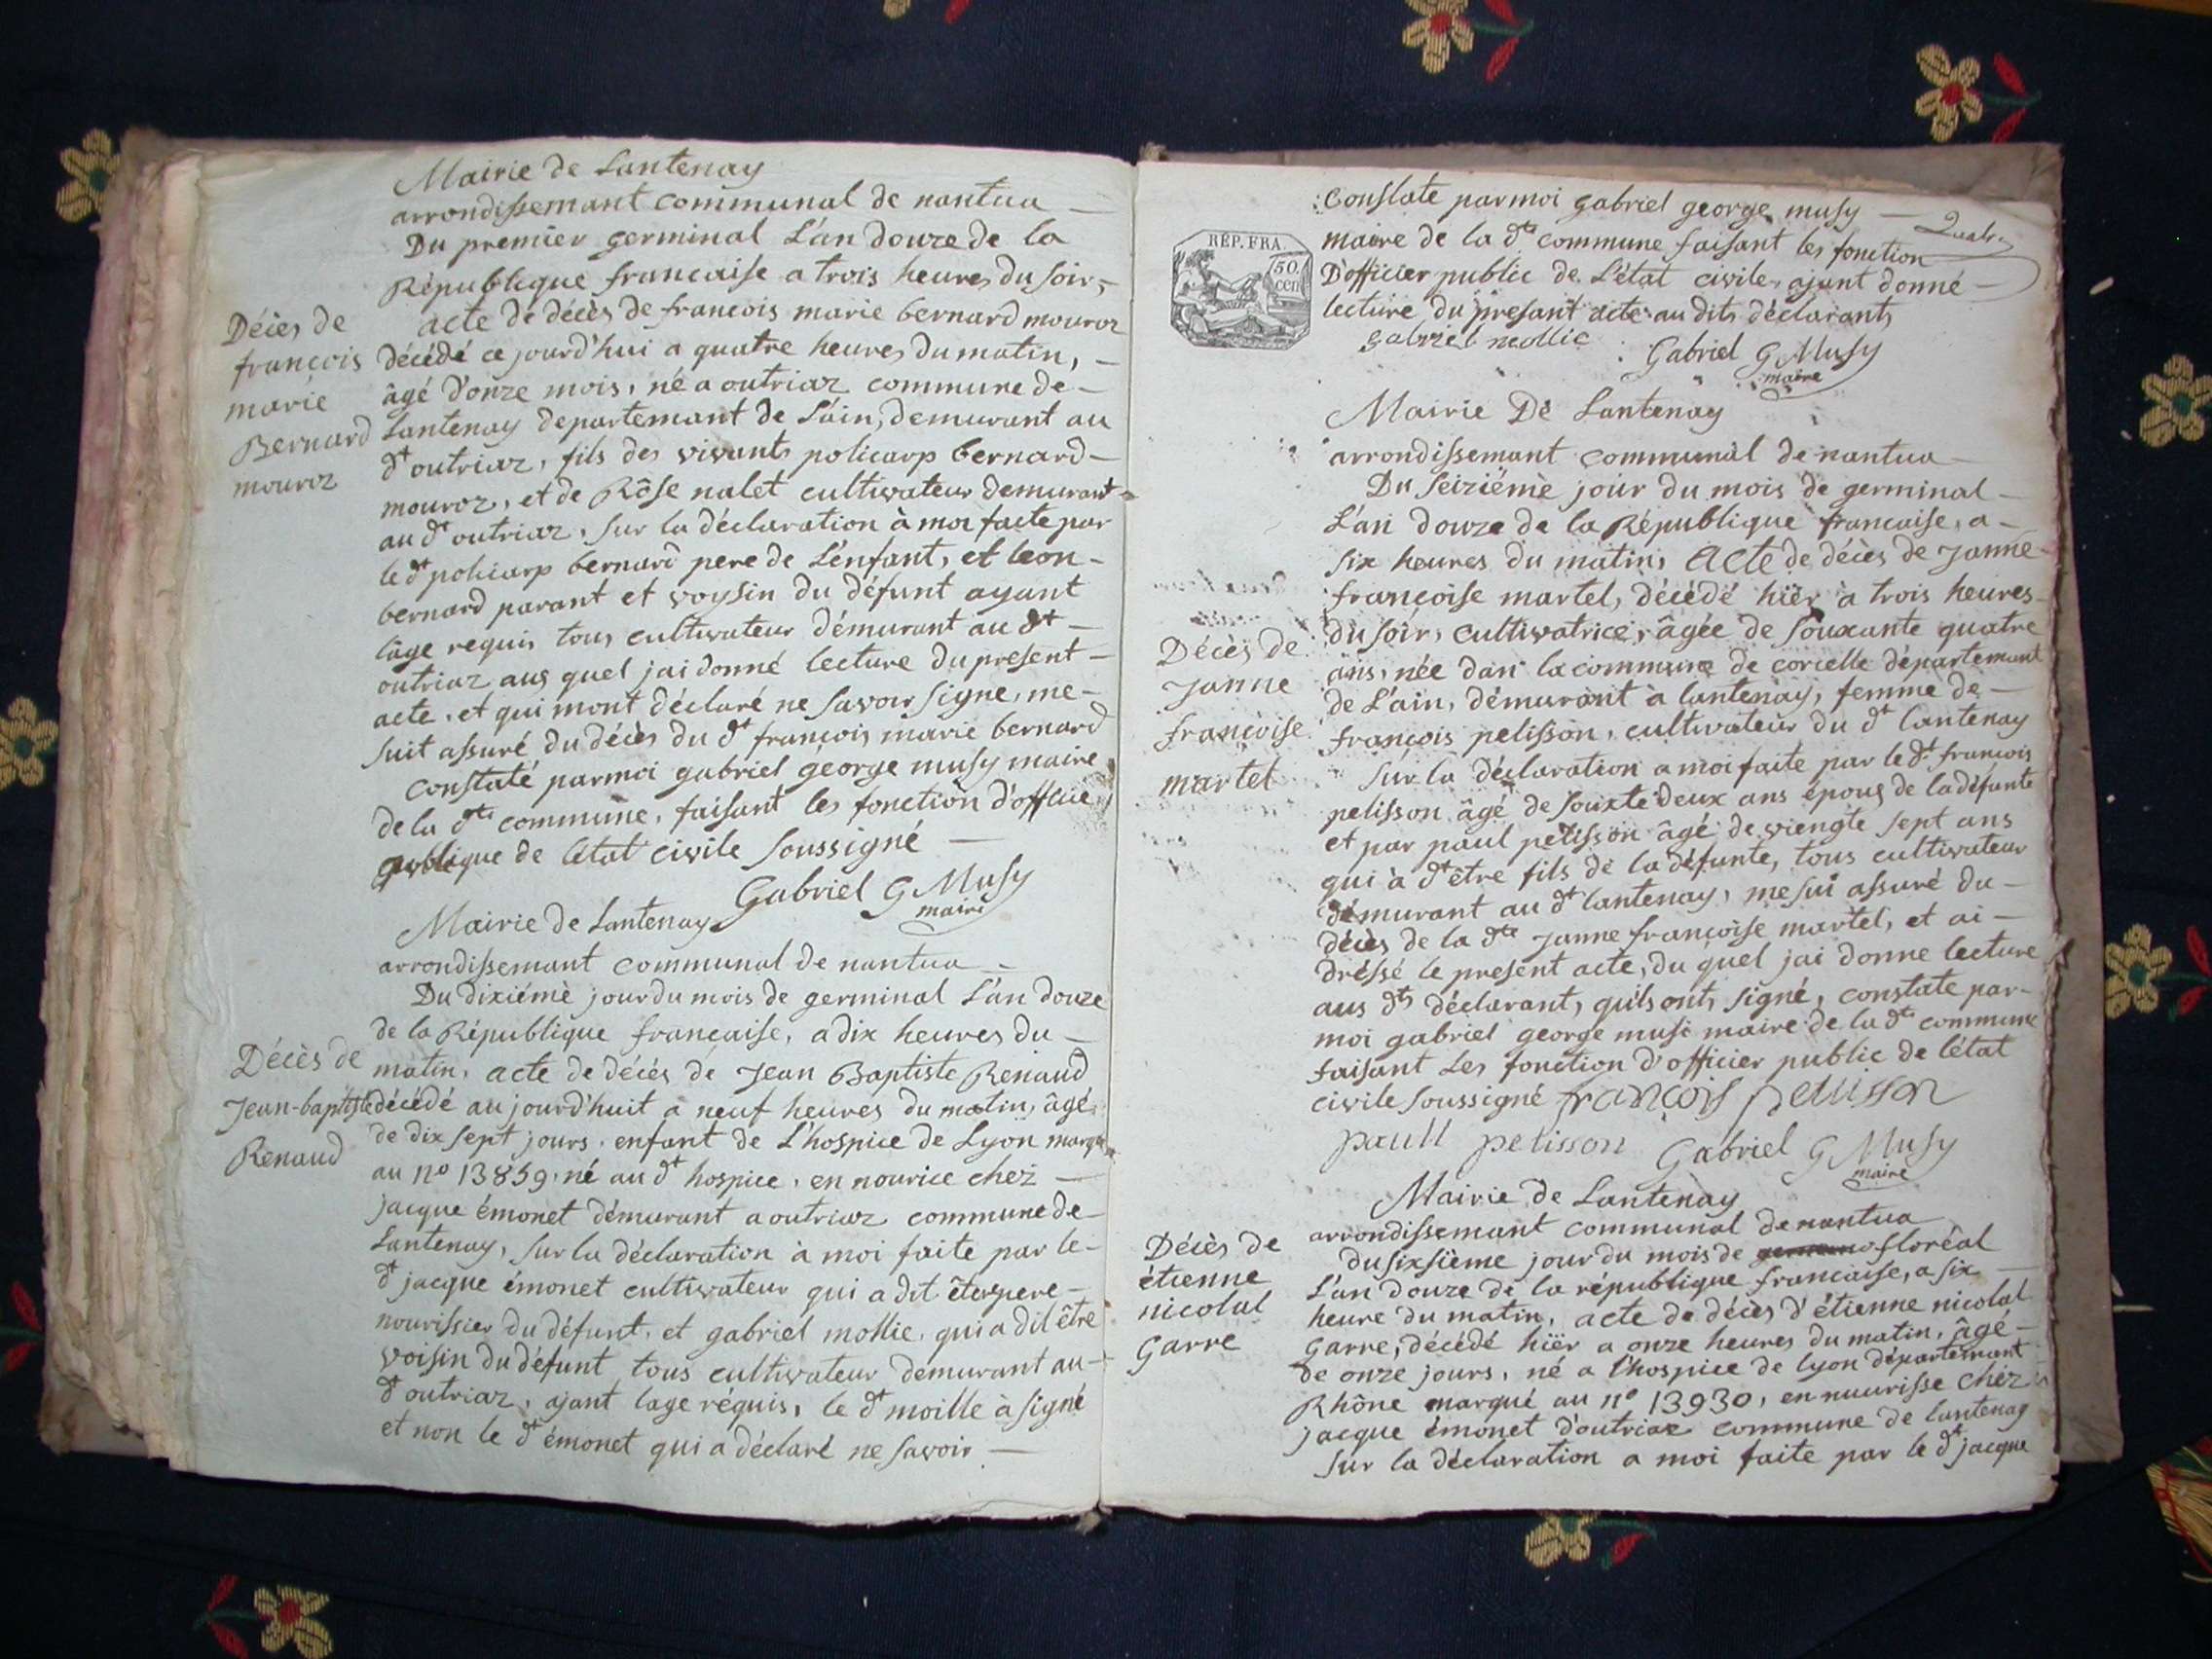 Mairie de Lantenay
arrondissemant communal de nantua
Du premier germinal L'an douze de la
République francaise a trois heures du soir,
Décès de
françois
marie
Bernard
mouroz
acte de décès de francois marie bernard mouroz
décédé ce jourd'hui a quatre heures du matin,
âgé d'onze mois, né a outriaz commune de
Lantenay departemant de l'ain, demurant au
dt outriaz, fils des vivants policarp bernard
mouroz, et de Rôse nalet cultivateur demurant
au dt outriaz, sur la déclaration à moi faite par
le dt policarp bernard pere de L'enfant, et leon
bernard parant et voysin du défunt ayant
l'âge requis tous cultivateur démurant au dt
outriaz aus quel jai donné lecture du present
acte, et qui mont déclaré ne savoir signe, me
suit assuré du décès du dt francois marie bernard
constaté par moi gabriel george musy maire
de la dte commune, faisant les fonction d'officie
publique de létat civile soussigné
Gabriel G Musy
maire
Mairie de Lantenay
arrondissemant communal de nantua
Du dixiémè jour du mois de germinal L'an douze
de la République francaise, a dix heures du
Décès de
Jean-baptiste
Renaud
matin, acte de décés de Jean Baptiste Renaud
décédé au jourd'huit a neuf heures du matin, âgé
de dix sept jours, enfant de L'hospice de Lyon marqué
au no 13859, né au dt hospice, en nourice chez
jacque émonet démurant a outriaz commune de
Lantenay, sur la déclaration à moi faite par le
dt jacque émonet cultivateur qui a dit être pere
nourissier du défunt, et gabriel mollie, qui a dit être
voisin du défunt tous cultivateur demurant au
dt outriaz, ajant lage réquis, le dt moille à signé
et non le dt émonet qui a déclaré ne savoir
constate par moi gabriel george musy
maire de la dte commune faisant les fonction
D'officier public de L'état civile, ajant donné
lecture du présant acte au dits déclarants
RÉP. FRA.
50.
cen
gabriel mollie
Gabriel G Musy
maire
Mairie De Lantenay
arrondissemant communal de nantua
Du seiziémè jour du mois de germinal
L'an douze de la République francaise, a
six heures du matin, acte de décès de Janne
françoise martel, décédé hiër à trois heures
du soir, cultivatrice, âgée de souxante quatre
Décès de
Janne
françoise
martel
ans, née dans la commune de corcelle département
de L'ain, démurant à lantenay, femme de
françois pelisson, cultivateur du dt lantenay
sur la déclaration a moi faite par le dt francois
pelisson âgé de souixte deux ans épous de la défunte
et par paul pelisson âgé de viengte sept ans
qui à dt être fils de la défunte, tous cultivateur
démurant au dt lantenay, me sui assuré du
décès de la dte Janne françoise martel, et ai
dréssé le present acte, du quel jai donne lecture
aus dts déclarant, quils ont signé, constate par
moi gabriel george musi maire de la dte commune
faisant les fonction d'officier public de l'état
civile soussigné françois pelisson
paull pelisson Gabriel G Musy
maire
Mairie de Lantenay
arrondissemant communal de nantua
Décès de
étienne
nicolal
Garre
du sixsïeme jour du mois de floréal
L'an douze de la république francaise, a six
heure du matin, acte de décès d'étienne nicolal
Garre, décédé hiër a onze heures du matin, âgé
de onze jours, né a l'hospice de lyon département
Rhône marqué au no 13930, en nuurisse chéz
jacque émonet d'outriaz commune de lantenay
sur la déclaration a moi faite par le dt jacque